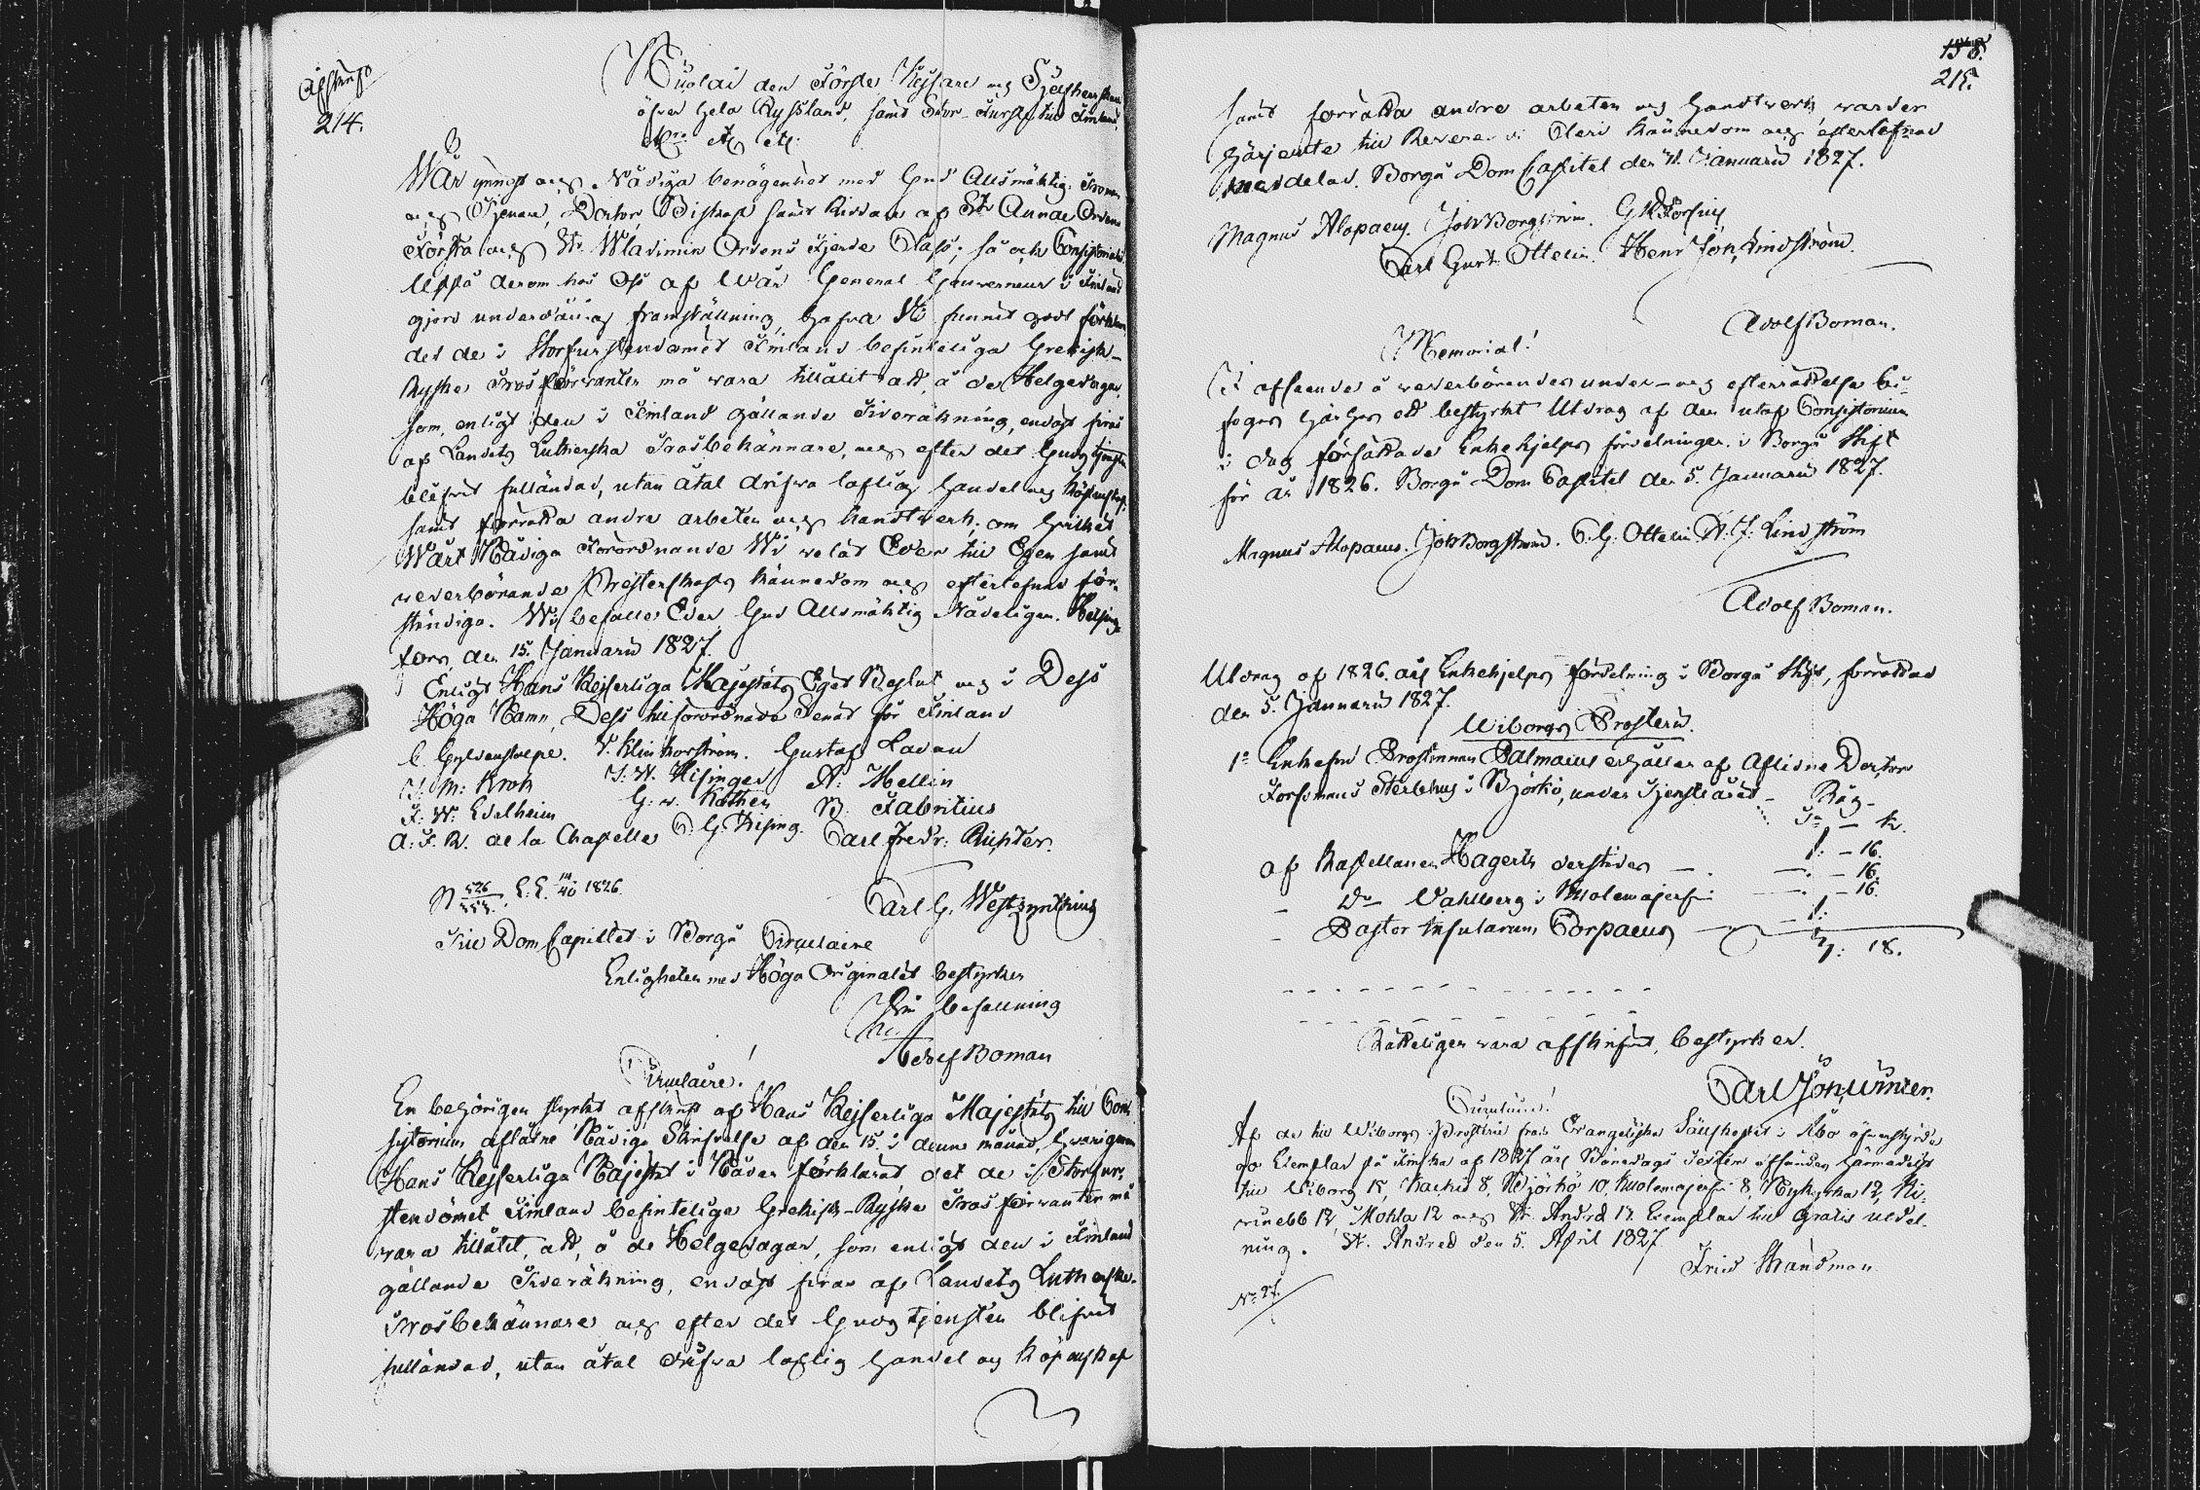 Afskrift
214.
Nicolai den Förste Kejsare och Sjelfherrskare
öfver hela Ryssland, samt Stor-Furste till Finland,
etc. etc. etc.
Wår ynnest och Nådiga benägenhet med Gud Allsmäktig. Troman
och Tjenare, Doctor, Biskop samt Riddare af St Annæ Ordens
Första och St. Wladimir Ordens Fjerde Class; så ock Consistoriales
Uppå derom hos Oss af Wår General Gouverneur i Finland
gjord underdånig framställning, hafva Wi funnit godt förklara,
det de i Storfurstendömet Finland befinteliga Grekisk-
Ryska Trosförvanter må vara tillåtit att å de Helgedagar,
som, enligt den i Finland gällande Tideräkning, endast firas
af Landets Lutherska Trosbekännare, och efter det Gudstjensten
blifvit fulländad, utan åtal drifva laflig handel och köpenskap,
samt förrätta andre arbeten och handtverk. om hvilket
Wårt Nådiga Förordnande Wi velat Eder till Egen samt
vederbörande Presterskaps kännedom och efterlefnad för-
ständiga. Wi befalle Eder Gud Allsmäktig Nådeligen. Helsing-
fors, den 15. Januarii 1827.
Enligt Hans Kejserliga Majestäts Eget Beslut och i Dess
Höga Namn, Dess tillförordnade Senat för Finland
C. Gyldenstolpe. V. Klinkowström. Gustaf Ladau
J: M: Krok J. W. Hisinger A: Mellin
F: W: Edelheim G: v. Kothen B. Fabritius
A: F. R. de la Chapelle C. G. Hising. Carl Fredr: Richter.
N 526 E. E. 1826.
Carl G. Westzynthius
Till Dom Capitlet i Borgå Circulaire
Enligheten med Höga Originalet bestyrker
På befallning
Adolf Boman
Circulaire!
En behörigen styrkt afskrift af Hans Kejserliga Majestäts till Con-
sistorium aflåtne Nådiga Skrifvelse af den 15. i denne månad, hvarigenom
Hans Kejserliga Majestät i Nåder förklarat, det de i Storfur-
stendömet Finland befintelige Grekisk-Ryska Trosförvanter må
vara tillåtit, att, å de Helgedagar, som enligt den i Finland
gällande Tideräkning, endast firas af Landets Lutherske
Trosbekännare och efter det Gudstjensten blifvit
fulländad, utan åtal drifva laflig handel och köpenskap
158.
215.
samt förrätta andre arbeten och handtverk varder
härjemte till Reverendi Cleri kännedom och efterlefnad
meddelad. Borgå Dom Capitel den 31. Januarii 1827.
Magnus Alopaeus. Joh Borgström. G R Forsius
Carl Gust: Ottelin. Henr Joh, Lindström.
Adolf Boman.
Memorial!
I afseende å vederbörandes under- och efterrättelse bi-
fogas härhos ett bestyrkt Utdrag af den utaf Consistorium
i dag författade Enkehjelps fördelningen i Borgå Stift
för år 1826. Borgå Dom Capitel den 5. Januarii 1827.
Magnus Alopaeus. Joh Borgström. C. G. Ottelin. H. J: Lindström
Adolf Boman.
Utdrag af 1826. års Enkehjelps fördelning i Borgå Stift, förrättad
den 5. Januarii 1827.
Wiborgs Prosteri.
1o Enkefru Prostinnan Palmaeus erhåller af Aflidne Doctor
Forsmans Sterbhus i Björkö, under Tjenståret - Råg -
Tr - K.
1: - 16.
af Kapellanen Hagerts derstädes - . -. - 16.
- Do Wahlberg i Kuolemajerfvi -. - 16
- Pastor Insularum Corpaeus - 1:
7: 18.
Rätteligen vara afskrifvit, bestyrker.
Carl Joh, Winter.
Circulaire!
Af de till Wiborgs Prosteri från Evangeliska Sällskapet i Åbo öfverstyrda
90 Exemplar på finska af 1827 års Bönedags Texter afsändes härmedelst
till Wiborg 15, Kackis 8, Björkö 10, Kuolemajerfvi 8, Nykyrka 12, Ki-
vinebb 12, Mohla 12 och St. Andreæ 12 Exemplar till gratis utdel-
ning. St. Andreæ den 5. April 1827.
Fried Strandman.
No 27.